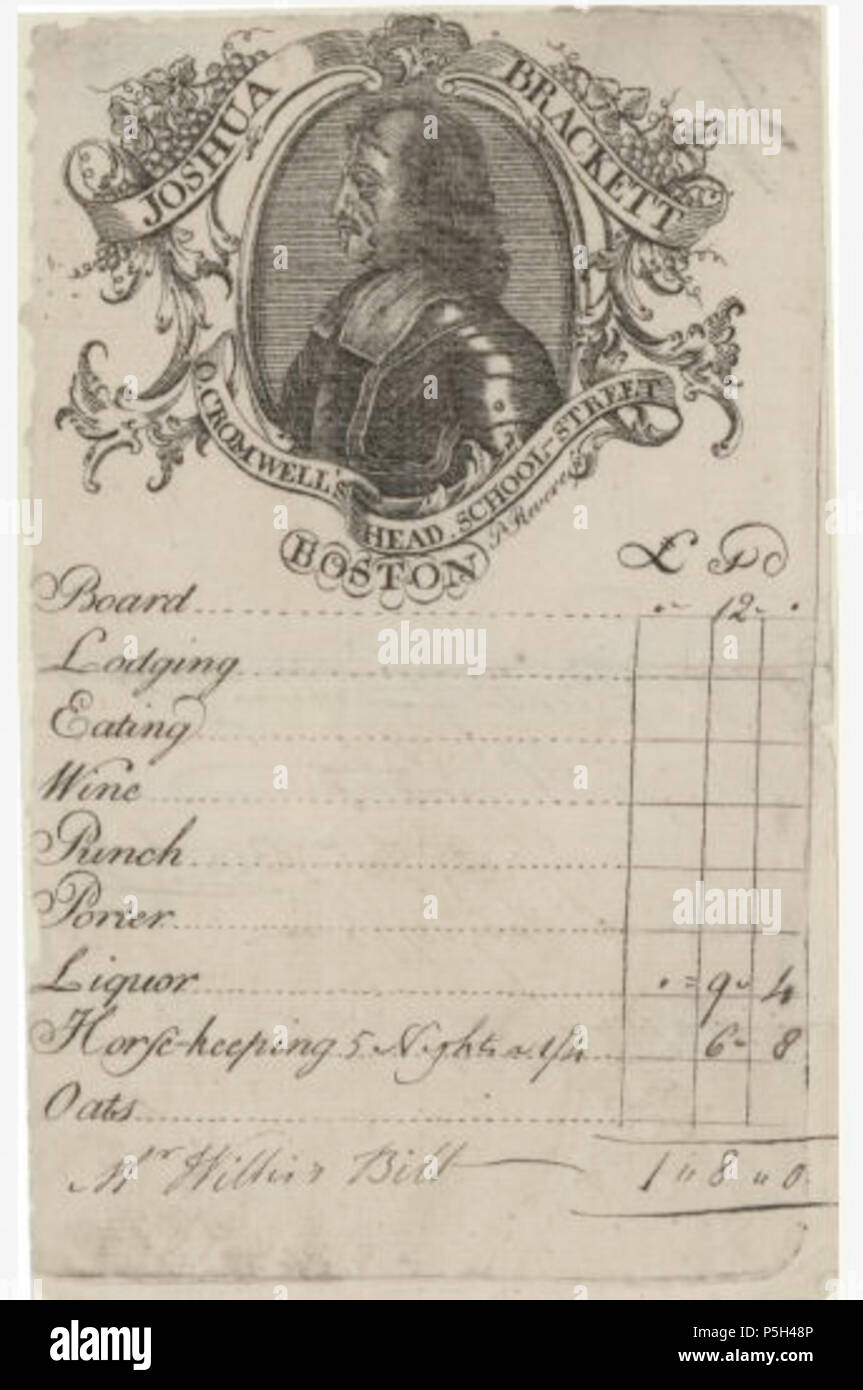 JOSHUA BRACKETT
O. CROMWELL'S HEAD, SCHOOL-STREET
P Revere
BOSTON
£ P
Board 12
Lodging
Eating
Wine
Punch
Porter
Liquor 9 4
Horſe-keeping 5 Nights 1/4 6 8
Oats
Mr Willis's Bill 1 " 8 " 0
alamy
Image ID: P5H48P
www.alamy.com